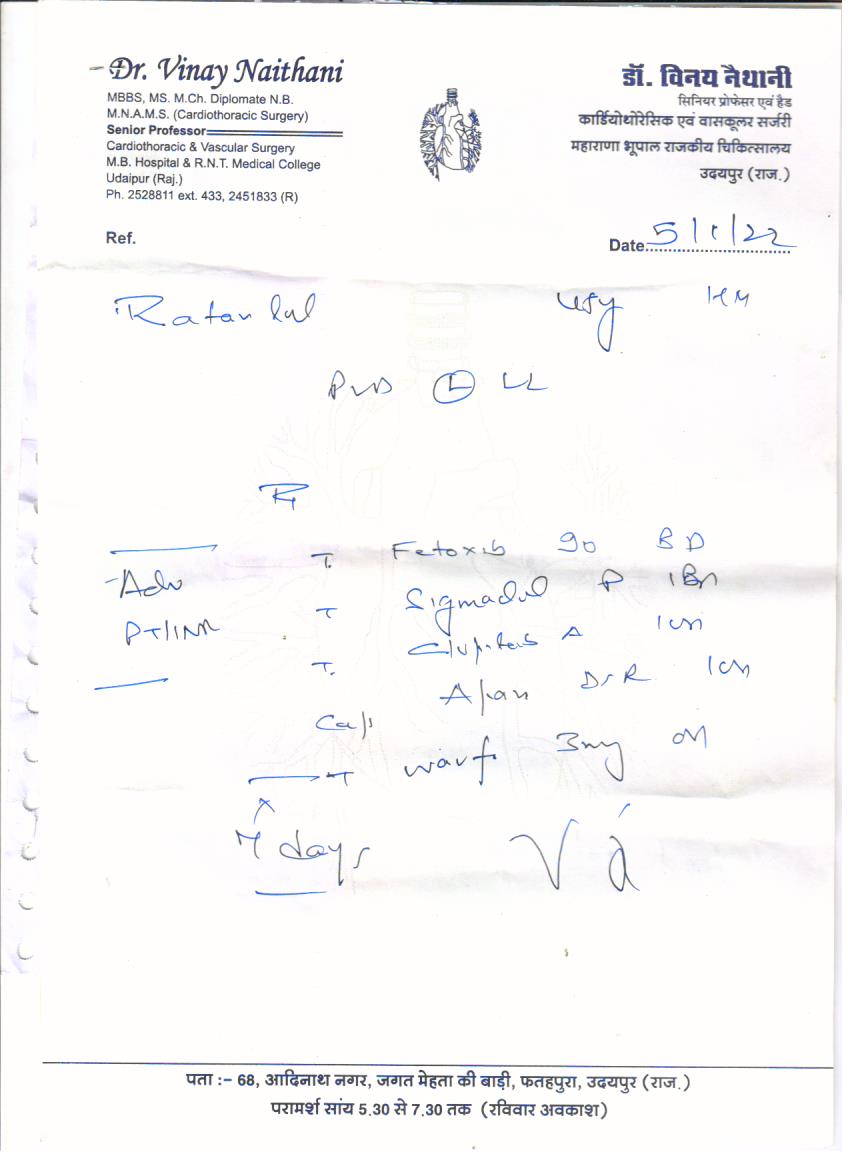 Dr. Vinay Naithani
MBBS, MS. M.Ch. Diplomate N.B.
M.N.A.M.S. (Cardiothoracic Surgery)
Senior Professor
Cardiothoracic & Vascular Surgery
M.B. Hospital & R.N.T. Medical College
Udaipur (Raj.)
Ph. 2528811 ext. 433, 2451833 (R)
डॉ. विनय नैथानी
सिनियर प्रोफेसर एवं हैड
कार्डियोथोरेसिक एवं वासकूलर सर्जरी
महाराणा भूपाल राजकीय चिकित्सालय
उदयपुर (राज.)
Ref.
Date: 5/1/22
Ratan Lal
PVD L LL
Rx
T. Fetoxib 90 BD
T Sigmadol P
T. A
Cap DSR
T Warf 3mg
Adv
PT/INR
x
7 days
पता :- 68, आदिनाथ नगर, जगत मेहता की बाड़ी, फतहपुरा, उदयपुर (राज.)
परामर्श सांय 5.30 से 7.30 तक (रविवार अवकाश)